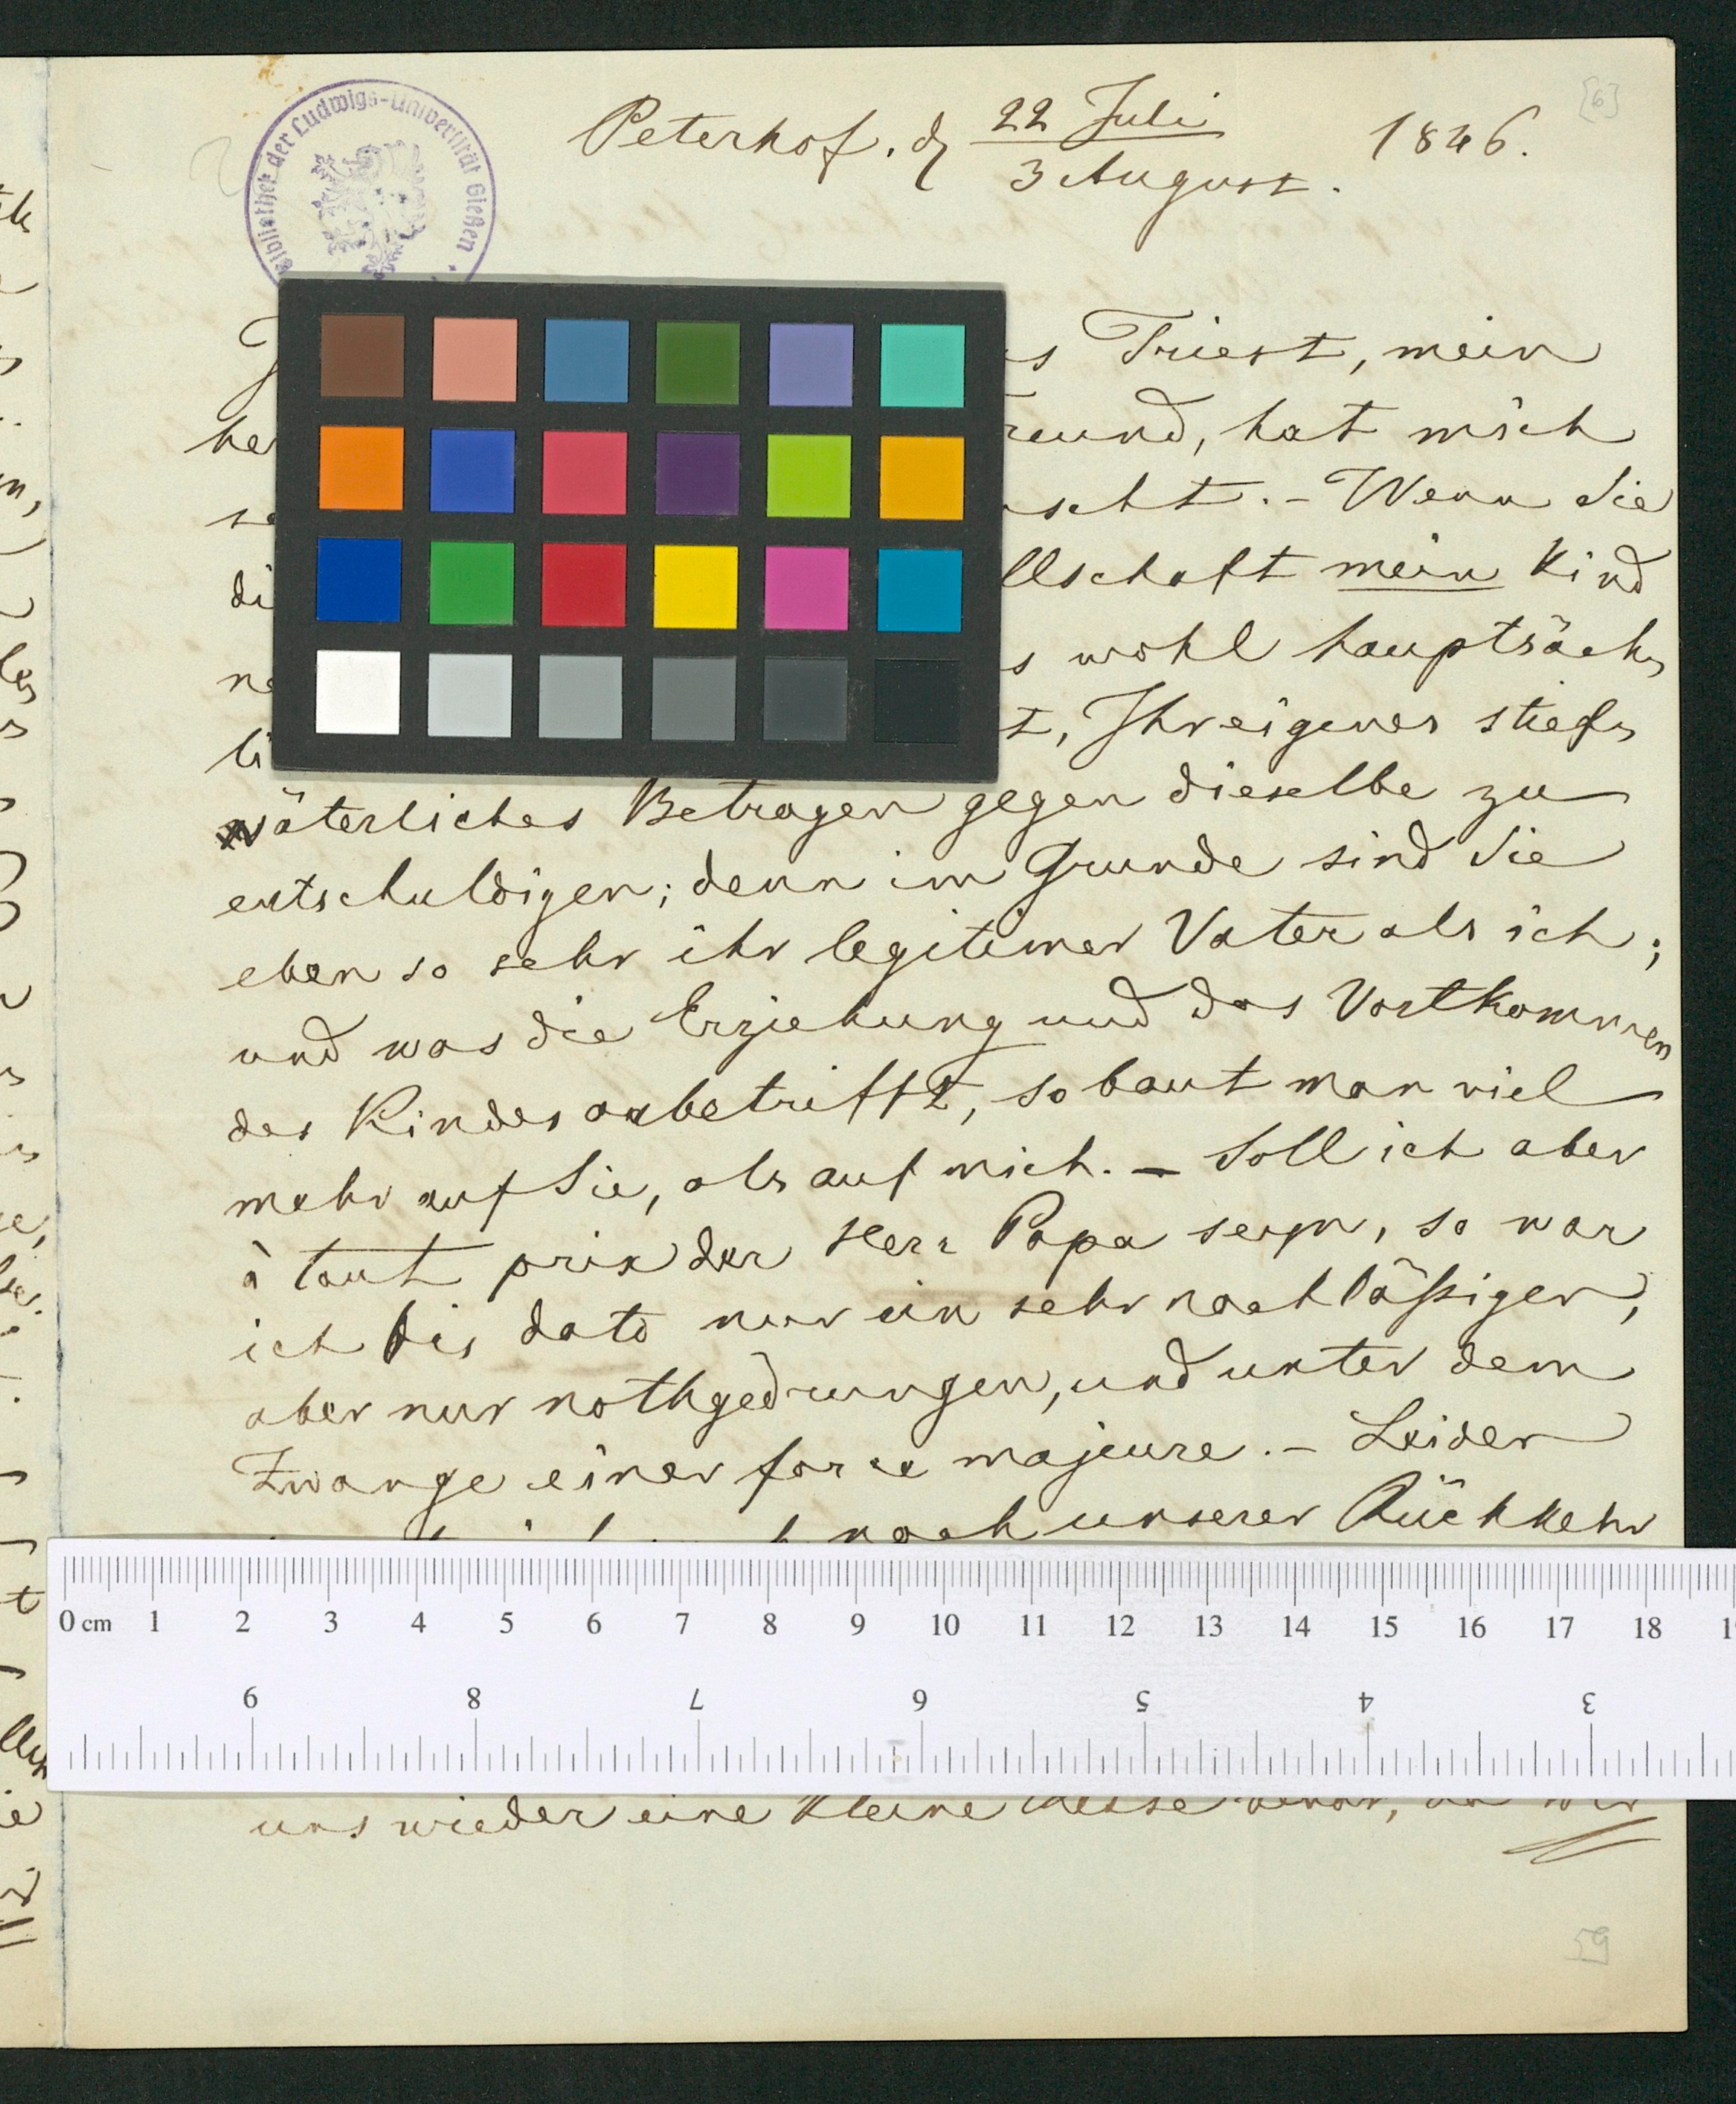 [6]
Bibliothek der Ludwigs-Universität Gießen
Peterhof. d. 22 Juli 1846.
3 August.
Triest, mein
hat mich
Wenn Sie
di llschaft mein Kind
wohl hauptsäch-
li t, Ihr eigenes stief-
väterliches Betragen gegen dieselbe zu
entschuldigen; denn im Grunde sind Sie
eben so sehr ihr legitimer Vater als ich;
und was die Erziehung und das Vortkommen
des Kindes anbetrifft, so baut man viel
mehr auf Sie, als auf mich. – Soll ich aber
à tout prix der Herr Papa seyn, so war
ich bis dato nur ein sehr nachläßiger,
aber nur nothgedrungen, und unter dem
Zwange einer force majeure. – Leider
nach unserer Rückkehr
0 cm 1 2 3 4 5 6 7 8 9 10 11 12 13 14 15 16 17 18
9 8 7 6 5 4 3
uns wieder eine kleine
59